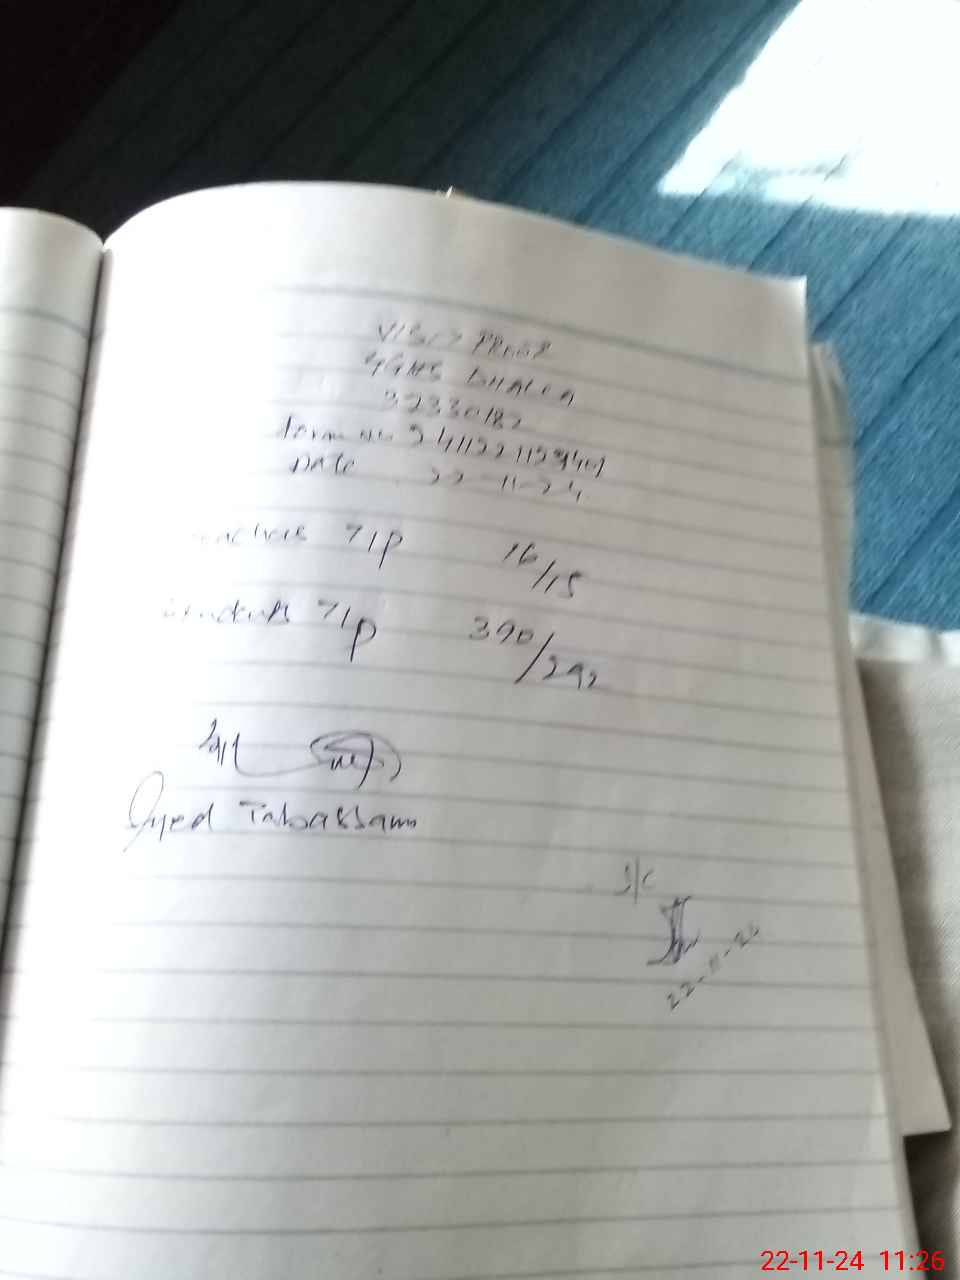 VISIT PROOF
GGHS DHALLA
32330182
Form No
Date 22-11-24
Teachers T/P 16/15
Students T/P 390/292
Syed Tabassam
I/C
22-11-24
22-11-24 11:26